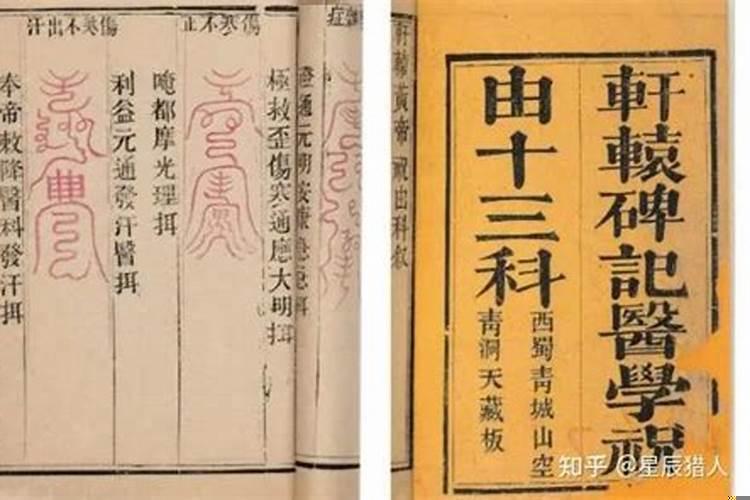 軒轅碑記醫學祝
由十三科
西蜀青城山空
青洞天藏板
軒轅黃帝祝由科叙
傷寒不止
極救歪傷寒通應大明挕
唵都摩光理挕
傷寒不出汗
利益元通發汗醫挕
奉帝敕降醫科發汗挕
知乎 @星辰猎人